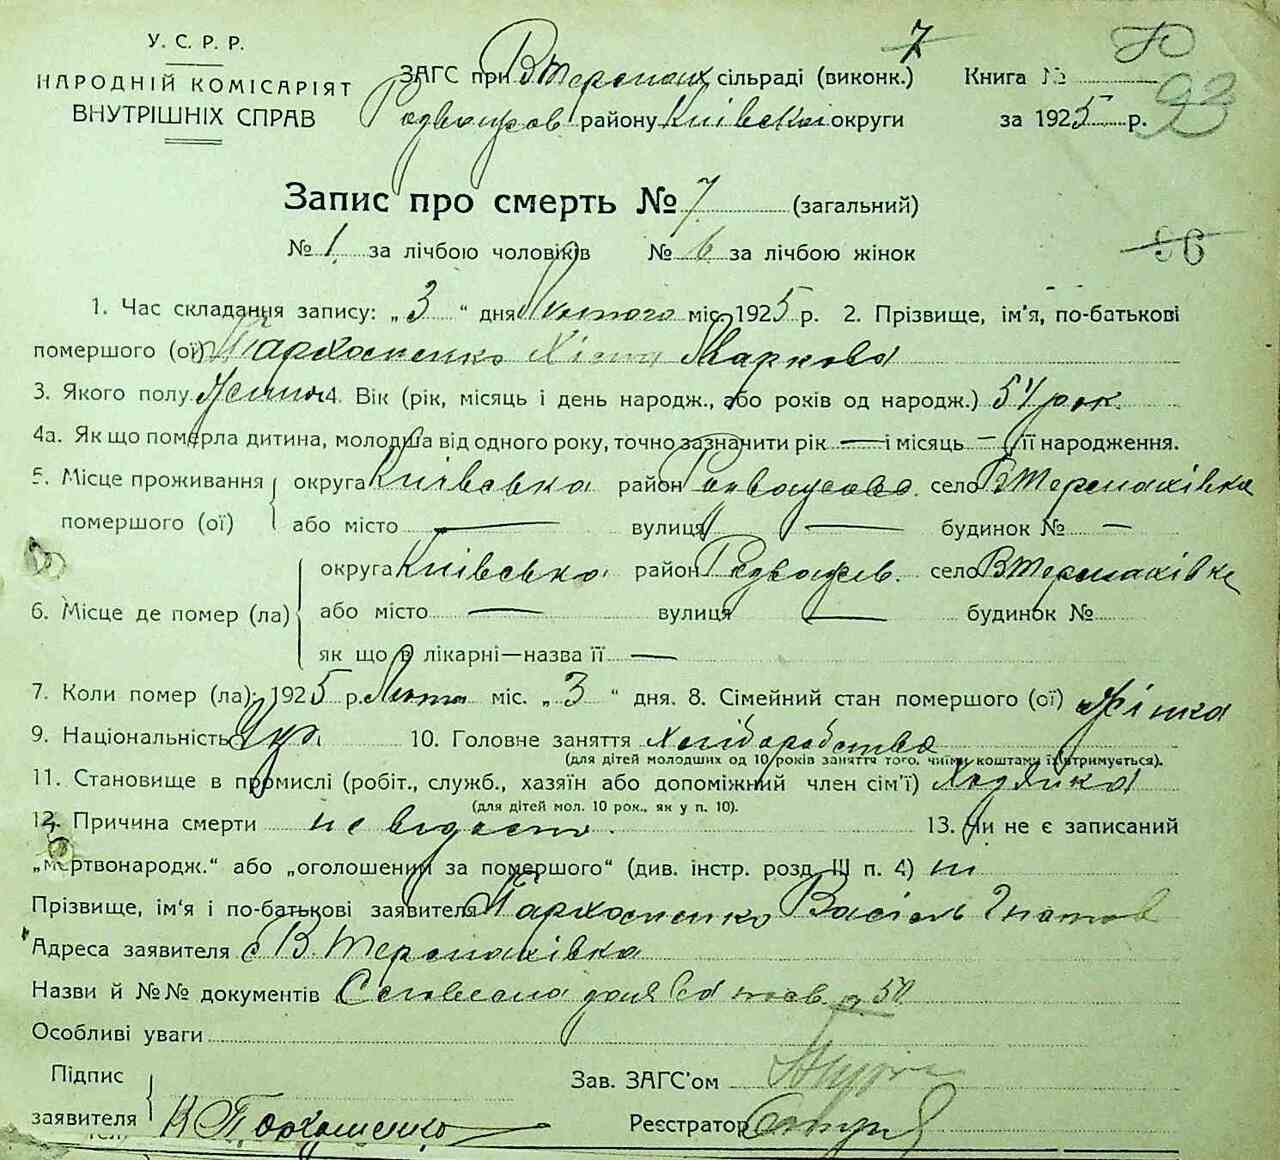 У. С. Р. Р.
НАРОДНІЙ КОМІСАРІЯТ
ВНУТРІШНІХ СПРАВ
7
ЗАГС при В Термах сільраді (виконк.)
району Київської округи
Книга №
за 1925 р.
93
Запис про смерть № 7 (загальний)
№ 1 за лічбою чоловіків № 6 за лічбою жінок
96
1. Час складання запису: „ 3 “ дня Лютого міс. 1925 р. 2. Прізвище, ім'я, по-батькові
померлого (ої) Пархоменко Маркова
3. Якого полу 4. Вік (рік, місяць і день народж., або років од народж.) 51 рок
4а. Як що померла дитина, молодша від одного року, точно зазначити рік — і місяць — її народження.
5. Місце проживання округа Київська район село В Термахівка
помершого (ої) або місто — вулиця — будинок № —
округа Київська район село В Термахівке
6. Місце де помер (ла) або місто — вулиця — будинок №
як що в лікарні—назва її —
7. Коли помер (ла): 1925 р. Люто міс. „ 3 “ дня. 8. Сімейний стан помершого (ої) жінка
9. Національність Укр. 10. Головне заняття Хліборобство
(для дітей молодших од 10 років заняття того, чиїми коштами їх утримується).
11. Становище в промислі (робіт., служб., хазяїн або допоміжний член сім'ї) Хозяйка
(для дітей мол. 10 рок., як у п. 10).
12. Причина смерти не відомо. 13. Чи не є записаний
„мертвонародж.“ або „оголошений за помершого“ (див. інстр. розд. III п. 4) ні
Прізвище, ім'я і по-батькові заявителя Пархоменко Василь Гнатов
Адреса заявителя с В. Термахівка
Назви й №№ документів 50
Особливі уваги
Підпис
заявителя
Зав. ЗАГС'ом
В Пархоменко
Реєстратор